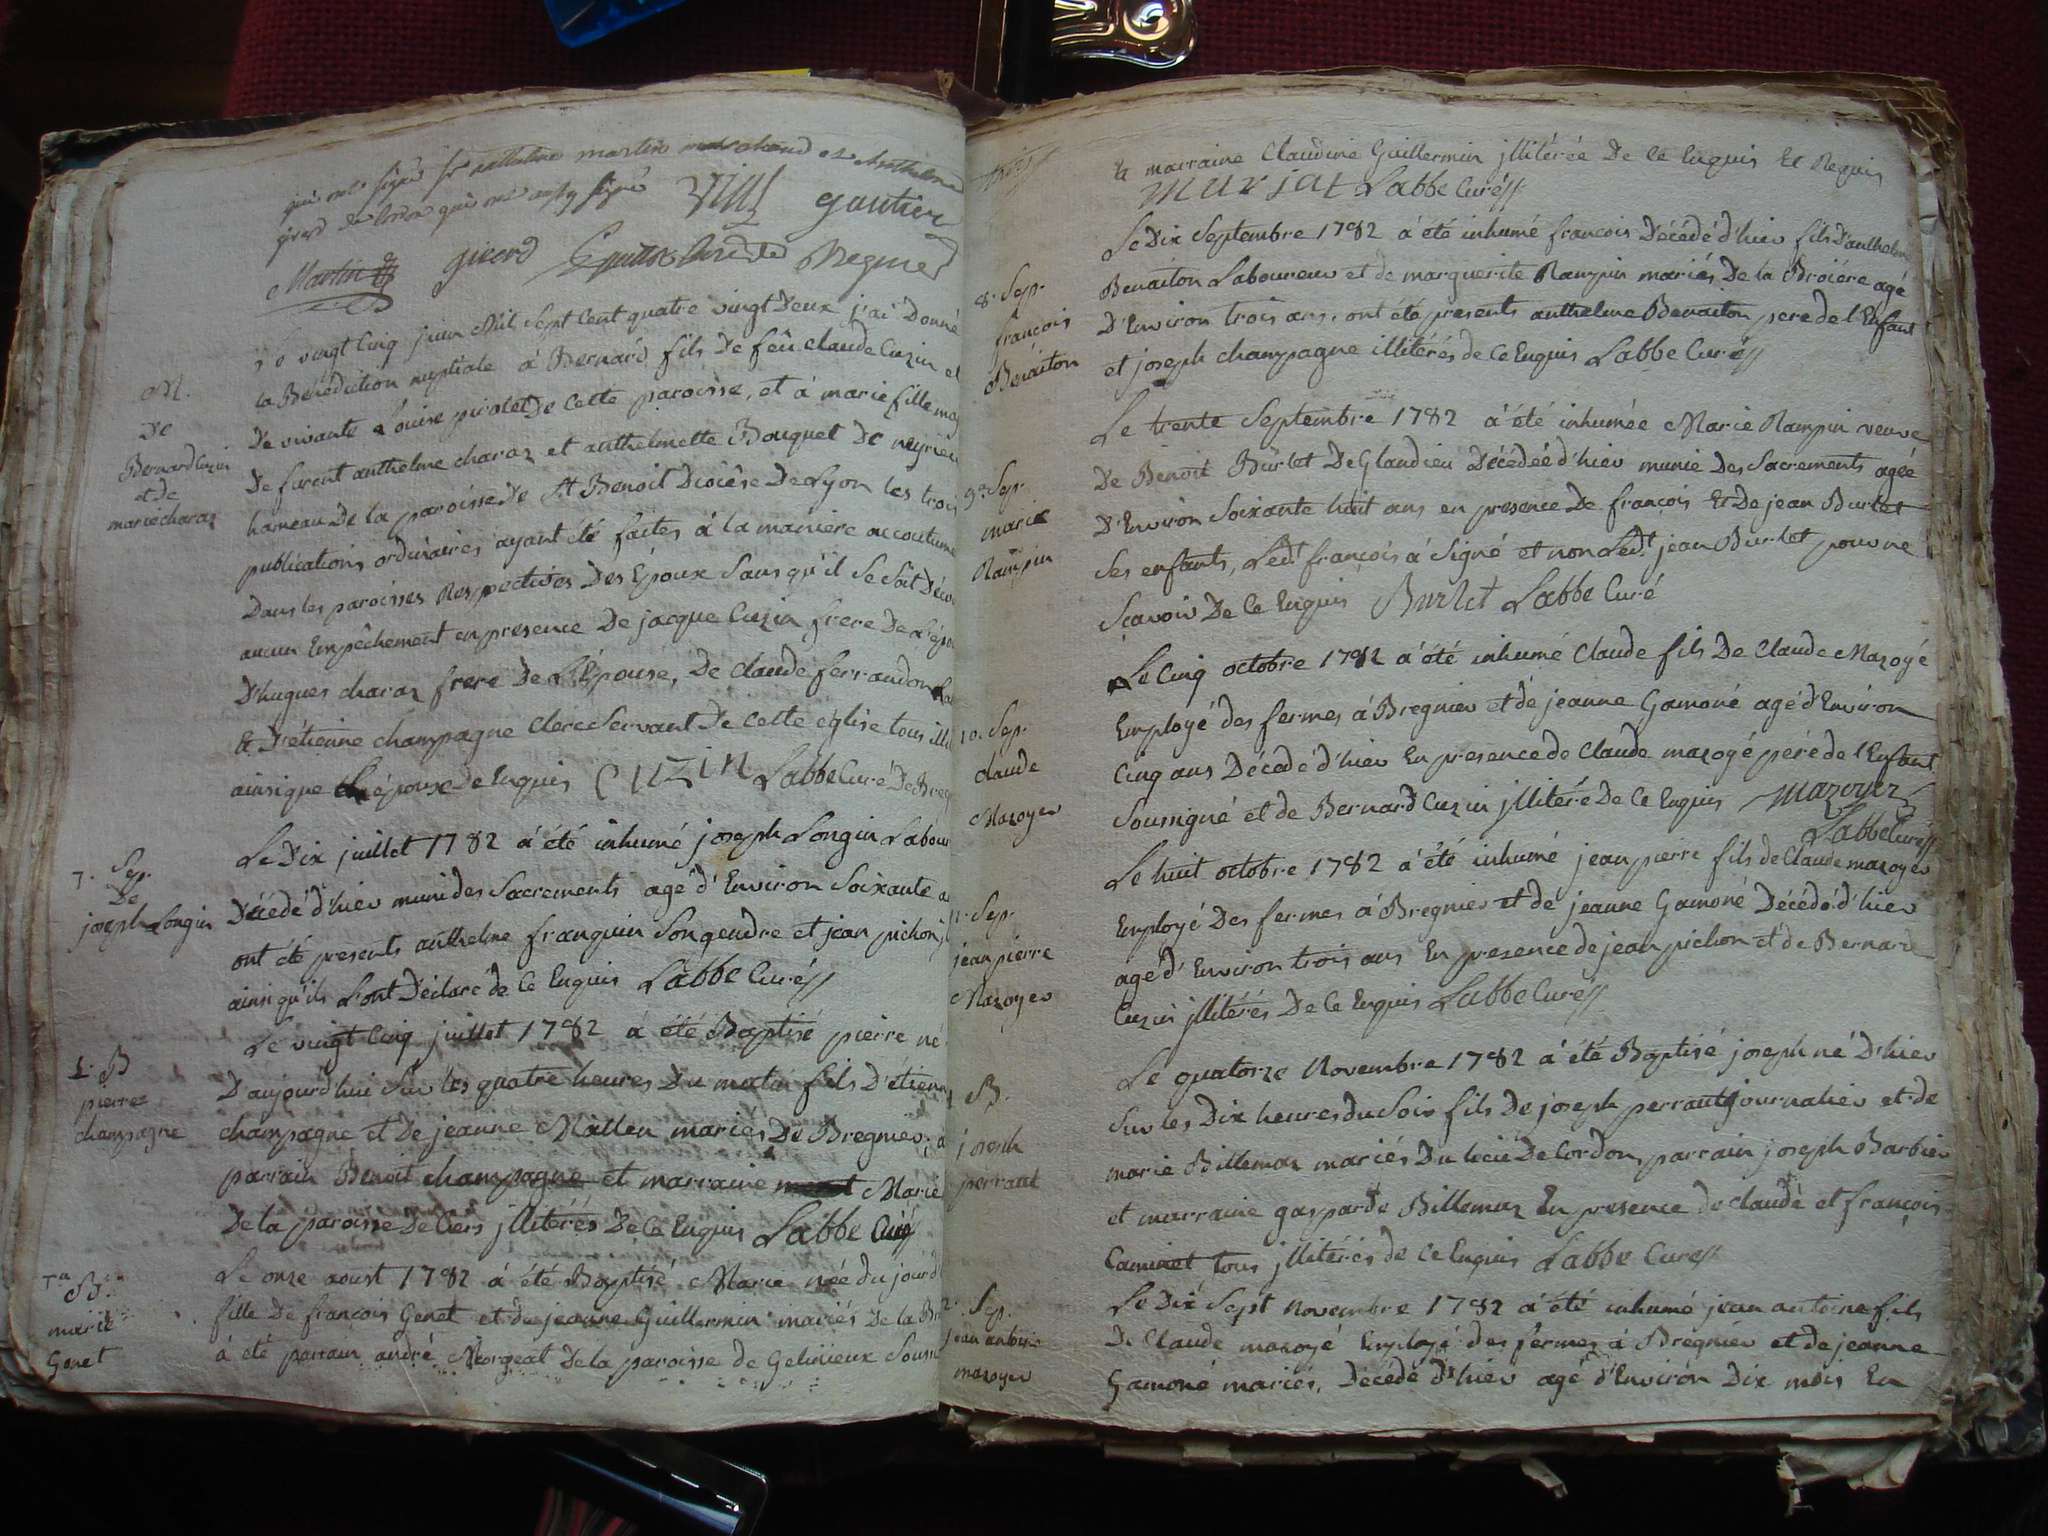 qui ont signé martin marchand et anthelme
girard de qui ont signé vill gautier
Martin girerd Regnier
Le vingt cinq juin Mil Sept Cent quatre vingt Deux j'ai Donné
la Benediction nuptiale à Bernard fils De feu Claude Cuzin et
De vivante Louise pirolet De Cette paroisse, et à marie fille
De furent anthelme charaz et anthelmette Bouquet De neyrieu
hameau De la paroisse De St Benoit Diocèse De Lyon les trois
publications ordinaires ayant été faites à la manière accoutumé
Dans les paroisses Respectives Des Epoux Sans qu'il Se Soit
aucun Empêchement en presence De jacque Cuzin frere De L'époux
D'hugues charaz frere De L'Epouse, De Claude ferrandon
& D'étienne champagne Clerc Servant De Cette église tous
ainsi que l'épouse De Enquis CUZIN Labbe Curé De
M.
De
Bernard Cuzin
et De
marie charaz
Le Dix juillet 1782 à été inhumé joseph Longin
Décédé d'hier muni des Sacrements agé d'Environ Soixante
ont été presents anthelme franquin Son gendre et jean pichon
ainsi qu'ils L'ont Déclaré de Ce Enquis Labbe Curé
7. Sep.
De
joseph Longin
Le vingt Cinq juillet 1782 à été Baptisé pierre né
D'aujourd'hui Sur les quatre heures Du matin fils D'etienne
champagne et De jeanne Mallen mariés De Bregnier
parrain Benoit champagne et marraine Marie
De la paroisse De Ciers jllitérés De Ce Enquis Labbe Curé
B
pierre
champagne
Le onze aoust 1782 à été Baptisé Marie née du jourd
fille De françois Genet et de jeanne Guillermin mariés De la
à été parrain andré Morgeat De la paroisse de Gelinieux
B.
marie
Genet
& marraine Claudine Guillermin jllitérée De Ce Enquis Et Requis
murjat Labbe Curé
Le Dix Septembre 1782 à été inhumé françois Décédé d'hier fils D'anthelme
Benaiton Laboureur et de marguerite Rampin mariés De la Broiére agé
D'Environ trois ans, ont été presents anthelme Benaiton pere de l'Enfant
et joseph champagne illitérés de Ce Enquis Labbe Curé
8. Sep.
françois
Benaiton
Le trente Septembre 1782 à été inhumée Marie Rampin veuve
De Benoit Burlet De Glandieu Décédée d'hier munie Des Sacrements agée
D'Environ Soixante huit ans en presence De françois Et De jean Burlet
Ses enfants, Ledt françois à Signé et non Ledt jean Burlet pour ne
Scavoir De Ce Enquis Burlet Labbe Curé
9. Sep.
marie
Rampin
Le Cinq octobre 1782 à été inhumé Claude fils De Claude Mazoyé
Employé des fermes à Bregnier et de jeanne Gamoné agé d'Environ
Cinq ans Décédé d'hier En presence de Claude mazoyé pére de l'Enfant
Soussigné et de Bernard Cuzin jllitéré De Ce Enquis Mazoyer
Labbe Curé
10. Sep.
Claude
Mazoyer
Le huit octobre 1782 à été inhumé jean pierre fils de Claude mazoyer
Employé Des fermes à Bregnier et de jeanne Gamoné Décédé d'hier
agé d'Environ trois ans En presence de jean pichon et de Bernard
Cuzin jllitérés De Ce Enquis Labbe Curé
11. Sep.
jean pierre
Mazoyer
Le quatorze Novembre 1782 à été Baptisé joseph né D'hier
Sur les Dix heures du Soir fils De joseph perraut journalier et de
marie Billemaz mariés Du lieu De Cordon, parrain joseph Barbier
et marraine gasparde Billemaz En presence de claude et françois
Caminet tous jllitérés de Ce Enquis Labbe Curé
B.
joseph
perraut
Le Dix Sept novembre 1782 à été inhumé jean antoine fils
De Claude mazoyé Employé des fermes à Bregnier et de jeanne
Gamoné mariés, Décédé d'hier agé d'Environ Dix mois En
Sep.
jean antoine
mazoyer